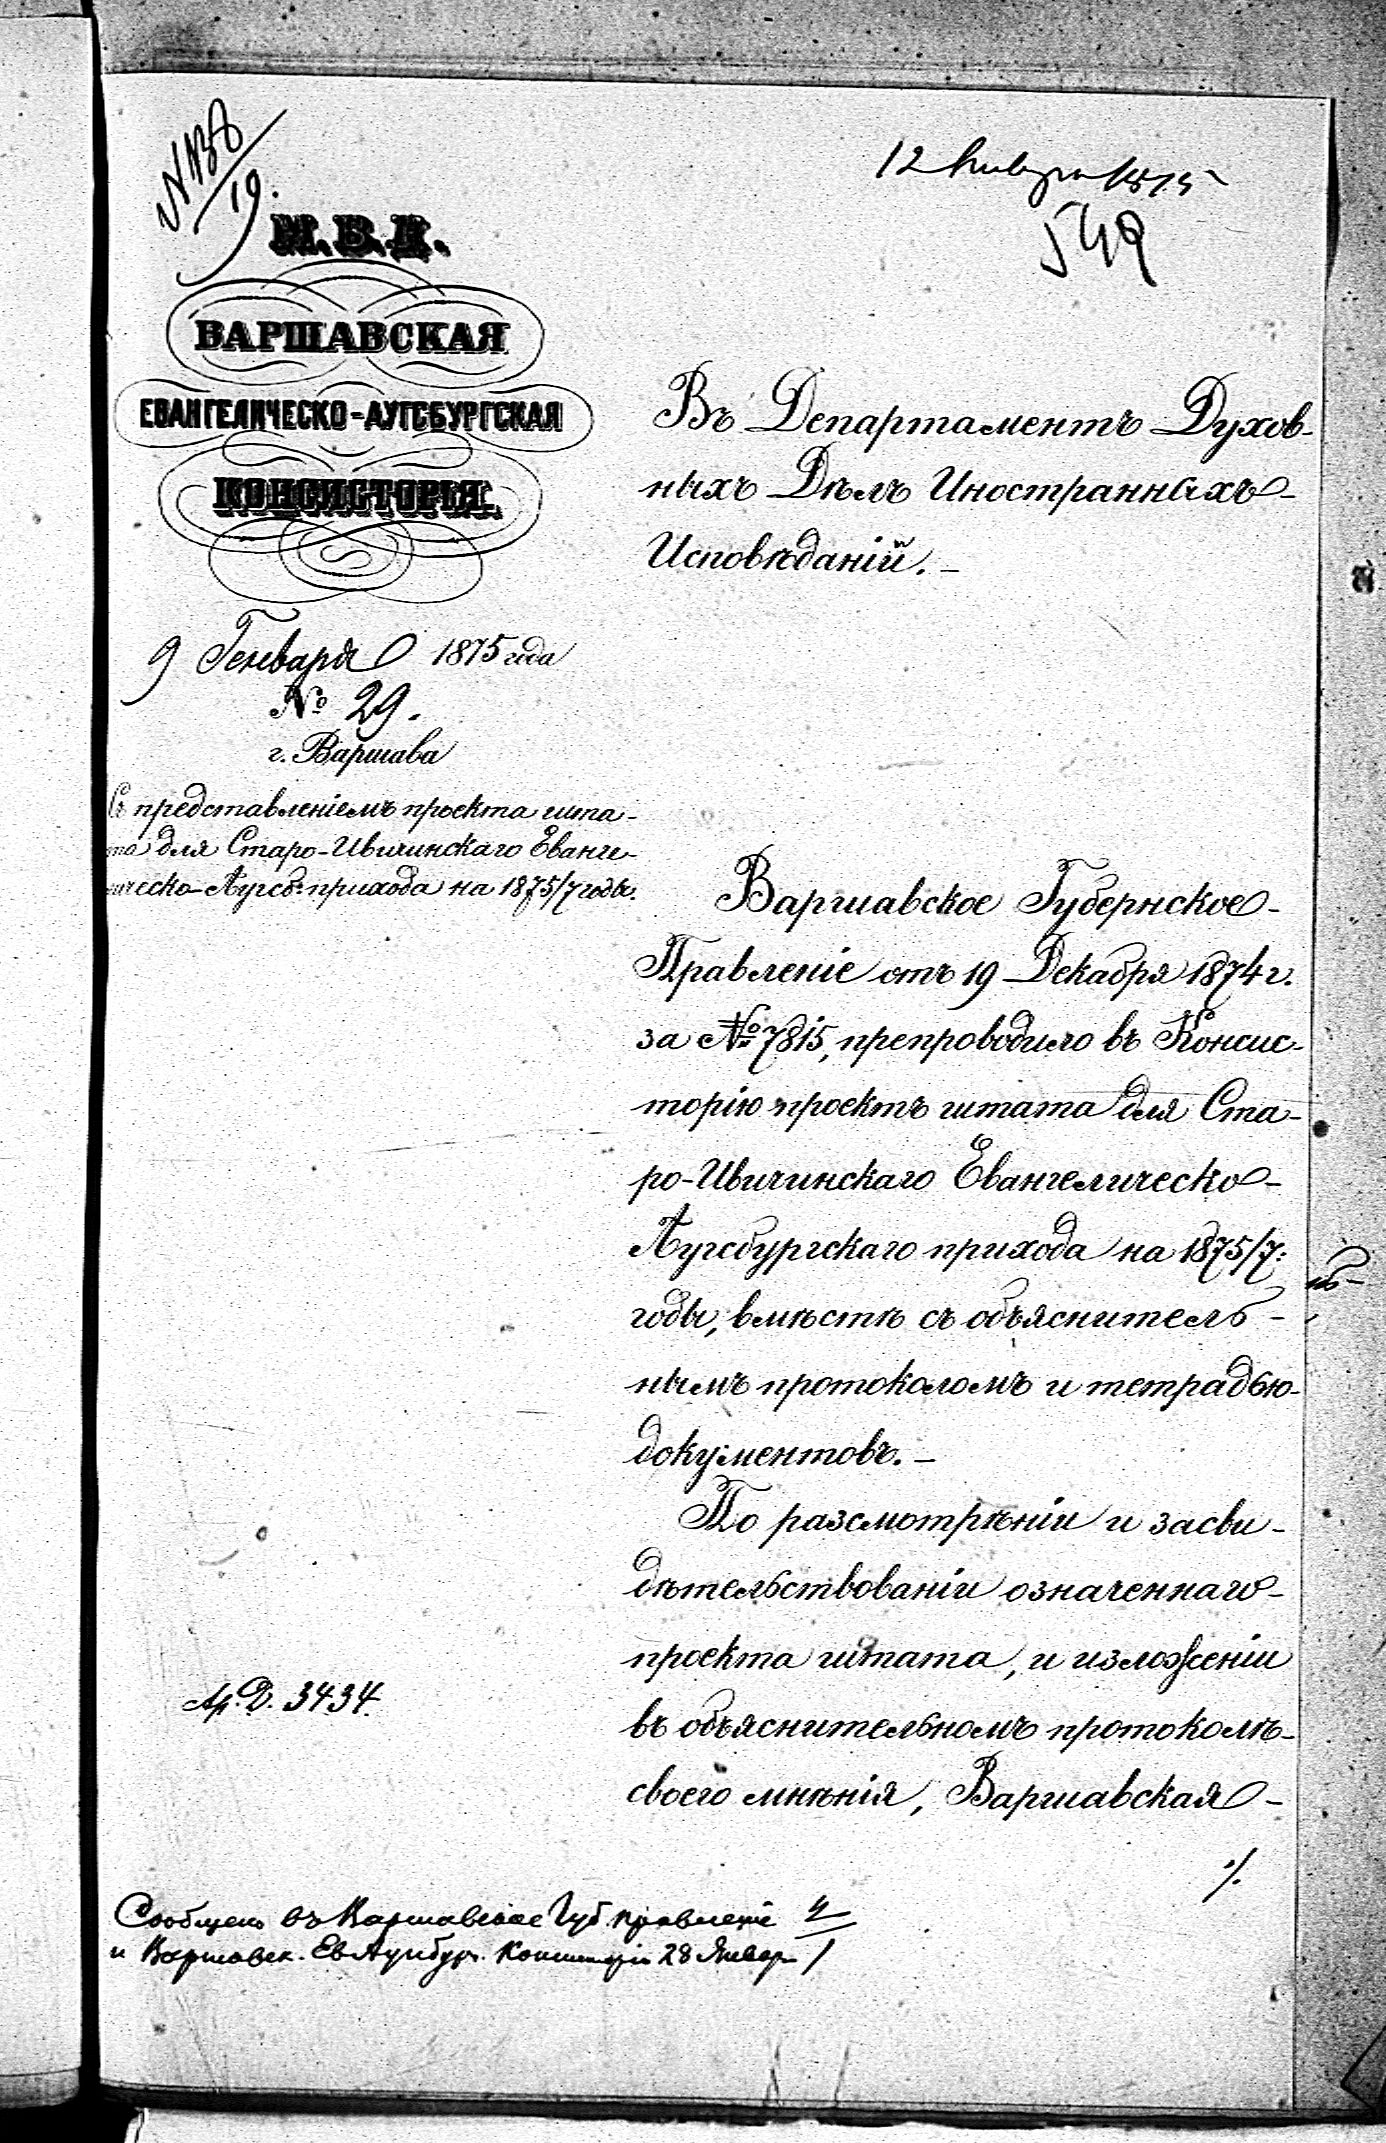 12 Января 1875
549
М.В.Д.
ВАРШАВСКАЯ
ЕВАНГЕЛИЧЕСКО-АУГСБУРГСКАЯ
КОНСИСТОРІЯ.
9 Генваря 1875 года
№ 29.
г. Варшава
Съ представленіемъ проекта шта-
та для Старо-Ивичинскаго Еванге-
ическо-Аугсб: прихода на 1875/7 годы.
Въ Департаментъ Духов-
ныхъ Дѣлъ Иностранныхъ
Исповѣданій. –
Варшавское Губернское
Правленіе отъ 19 Декабря 1874 г.
за № 7815, препроводило въ Консис-
торію проектъ штата для Ста-
ро-Ивичинскаго Евангелическо-
Аугсбургскаго прихода на 1875/7:
годы, вмѣстѣ съ объяснитель-
нымъ протоколомъ и тетрадью
документовъ. –
По разсмотрѣніи и засви-
дѣтельствованіи означеннаго
проекта штата, и изложеніи
въ объяснительномъ протоколѣ
своего мнѣнія, Варшавская
./.
Ар. Д. 3434.
Сообщено въ Варшавское Губ. правленіе
и Варшавск. Ев Аугсбург. Консисторію 28 Январ